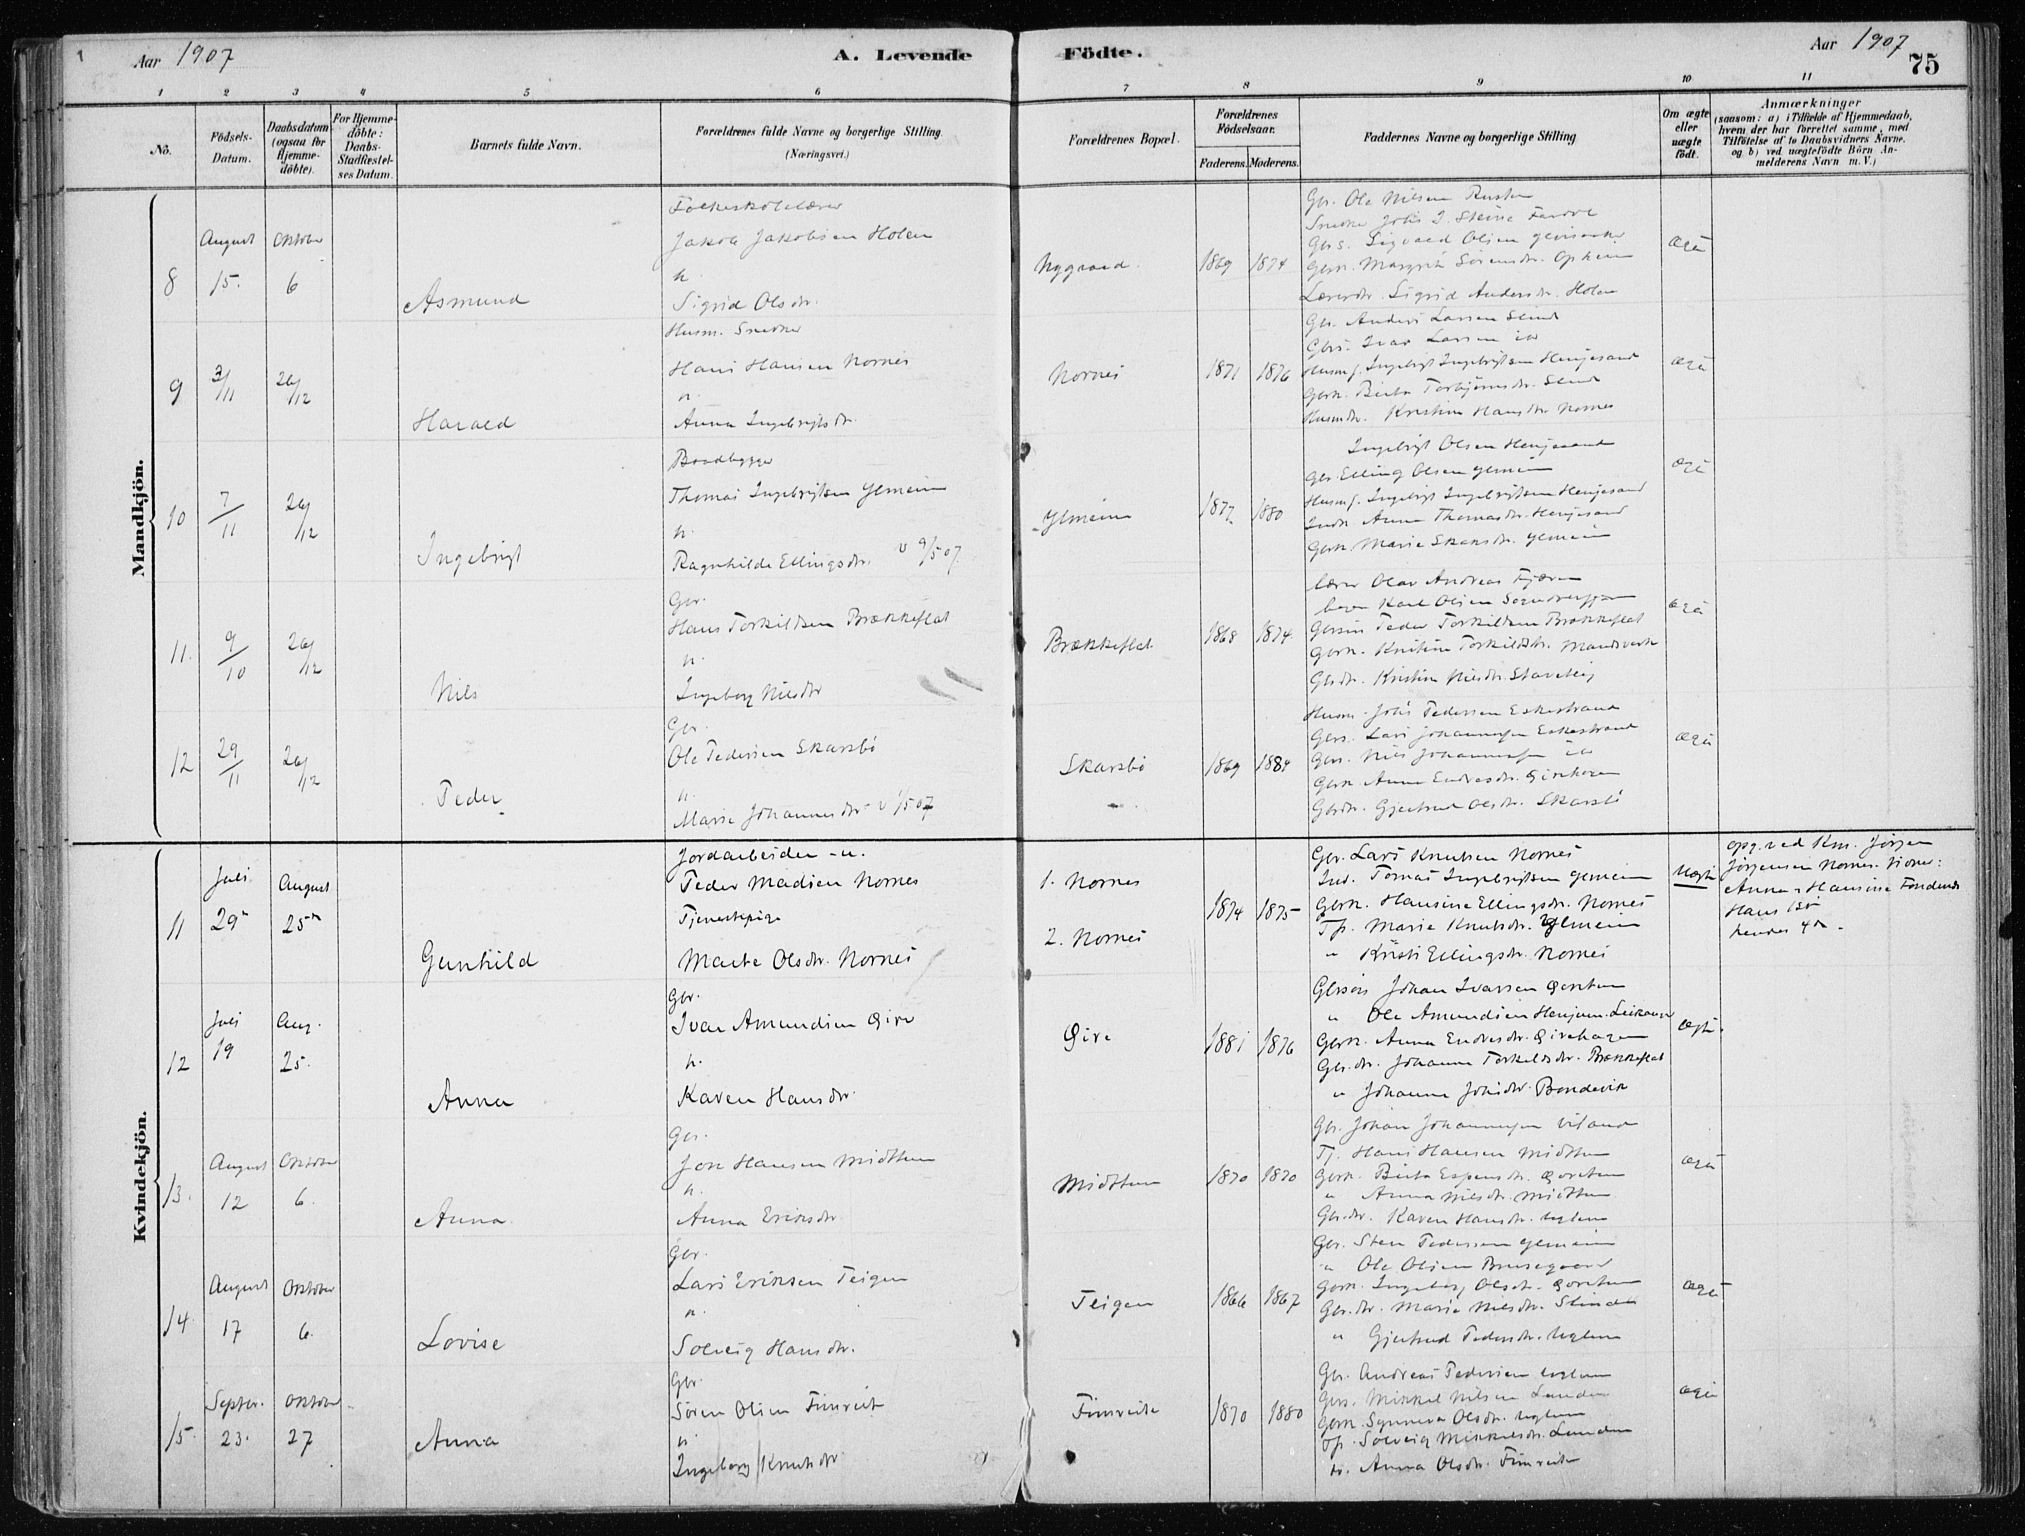 Aar 1907
A. Levende Födte.
Aar 1907
75
1 2 3 4 5 6 7 8 9 10 11
No.
Födsels-Datum.
Daabsdatum (ogsaa for Hjemme-döbte).
For Hjemme-döbte: Daabs-Stadfæstel-ses Datum.
Barnets fulde Navn.
Forældrenes fulde Navne og borgerlige Stilling.
(Næringsvei.)
Forældrenes Bopæl.
Forældrenes Födselsaar.
Faderens. Moderens.
Faddernes Navne og borgerlige Stilling
Om ægte eller uægte födt.
Anmærkninger
(saasom: a) i Tilfælde af Hjemmedaab, hvem der har forrettet samme, med Tilföielse af to Daabsvidners Navne, og b) ved uægtefödte Börn An-melderens Navn m. V.)
Mandkjön.
8
August 15.
Oktober 6
Asmund
Folkeskolelærer
Jakob Jakobsen Holen
h.
Sigrid Olsdr.
Nygaard
1869 1874
Gbr. Ole Nilsen
Gbrs. Sigvard Olsen
Gbrk. Margrit Sørensdr. Opheim
Lærerdr. Sigrid Andersdr. Holen
ægte
9
3/11
26/12
Harald
Husm. Snedker
Hans Hansen Nornes
h.
Anna Ingebrigtsdr.
Nornes
1871 1876
Gbr. Anders Larsen Slinde
Gbrs. Ivar Larsen ib
Husmf. Ingebrigt Ingebrigtsen Henjesand
Gbrk. Brita Torbjørnsdr. Slinde
Husmdr. Kristine Hansdr. Nornes
ægte
10
7/11
26/12
Ingebrigt
Baadbygger
Thomas Ingebrigtsen Ylmeim
h.
Ragnhilde Ellingsdr. v 9/5 07.
Ylmeim
1877 1880
Ingebrigt Olsen Henjesand
Gbr Elling Olsen Ylmeim
Husmf. Ingebrigt Ingebrigtsen Henjesand
Indk. Anna Thomasdr. Henjesand
Gbrk Marie Ylmeim
ægte
11.
9/10
26/12
Nils
Gbr.
Hans Torkildsen Brækkeflat
h.
Ingeborg Nilsdr
Brækkeflat
1868 1874
Lærer Olav Andreas Fjæren
Karl Olsen
Gbrsøn Peder Torkildsen Brækkeflat
Gbrk. Kristine Torkildsdr.
Gbrdr. Kristine Nilsdr. Stavteig
ægte
12
29/11
26/12
Peder
Gbr
Ole Pedersen Skarsbö
h.
Marie Johannesdr v 1/5 07
Skarsbö
1869 1884
Husm. Johs Pedersen Eskestrand
Gbrs. Lars Johannesen Eskestrand
Gbrs. Nils Johannesen ib
Gbrk. Anna Endresdr. Girehagen
Gbrdr. Gjertrud Olsdr. Skarsbö
ægte
Kvindekjön.
11
Juli 29
August 25
Gunhild
Jordarbeider u.
Peder Madsen Nornes
Tjenestepige
Marta Olsdr. Nornes
1. Nornes
2. Nornes
1874 1875
Gbr. Lars Knutsen Nornes
Ind. Tomas Ingebrigtsen Ylmeim
Gbrk. Hansine Ellingsdr. Nornes
Tp. Marie Knutsdr. Ylmeim
" Kristi Ellingsdr. Nornes
Uægte
opg. ved Km. Jörgen
Jörgensen Nornes.
Anna Hansine
Hans
hendes 4
12
Juli 19
Aug. 25.
Anna
Gbr.
Ivar Amundsen Gire
h.
Karen Hansdr.
Gire
1881 1876
Gbrsøn Johan Ivarsen
" Ole Amundsen Henjum. Leikanger
Gbrk. Anna Endresdr. Girehagen
Gbr.dr. Johanna Torkildsdr. Brækkeflat
" Johanna Johsdr. Bondevik
ægte
13.
August 12
Oktober 6.
Anna
Gbr.
Jon Hansen Midttun
h.
Anna Eriksdr
Midttun
1870 1870
Gbr. Johan Johannesen
Tj. Hans Hansen Midttun
Gbrk. Brita Espensdr.
" Anna Nilsdr. Midttun
Gbrdr. Karen Hansdr.
ægte
14.
August 17
Oktober 6.
Lovise
Gbr.
Lars Eriksen Teigen
h.
Solveig Hansdr.
Teigen
1866 1867
Gbr. Sten Pedersen Ylmeim
" Ole Olsen
Gbrk. Ingeborg Olsdr.
Gbr.dr. Marie Nilsdr. Slinde
" Gjertrud Pedersdr.
ægte
15.
Septbr. 23.
Oktober 27
Anna
Gbr.
Sören Olsen Fimreite
h.
Ingeborg Knutsdr
Fimreite
1870 1880
Gbr. Andreas Pedersen
Gbrs. Mikkel Nilsen Lunden
Gbrk. Synneva Olsdr.
Solveig Mikkelsdr. Lunden
Anna Olsdr. Fimreite
ægte